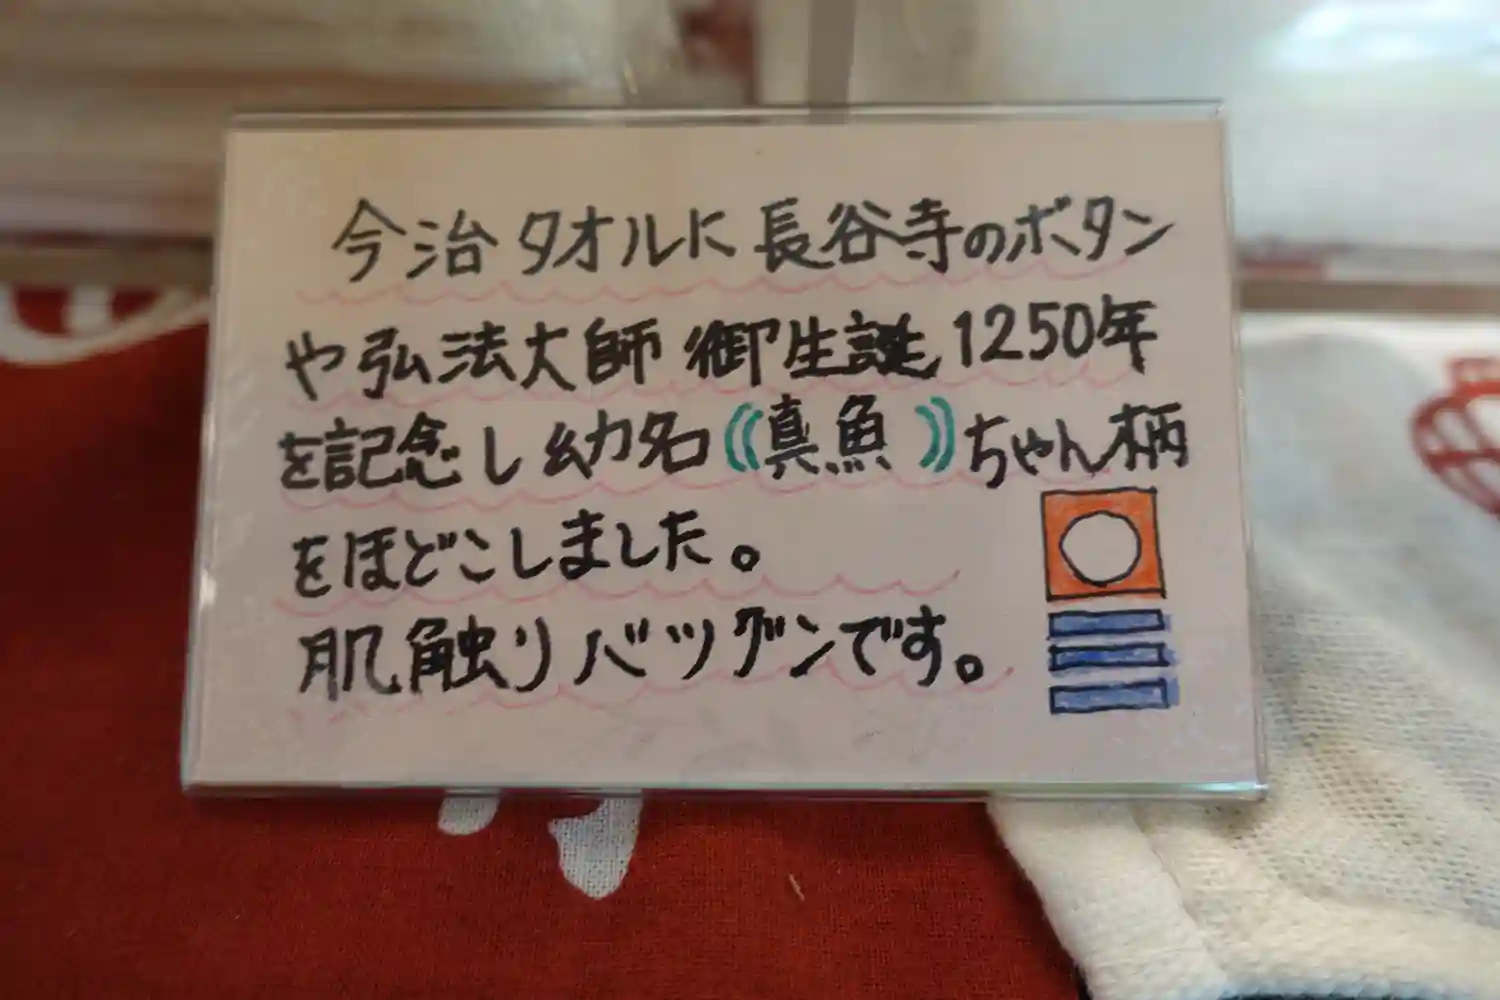 今治タオルに長谷寺のボタン
や弘法大師御生誕1250年
を記念し幼名《真魚》ちゃん柄
をほどこしました。
肌触りバツグンです。